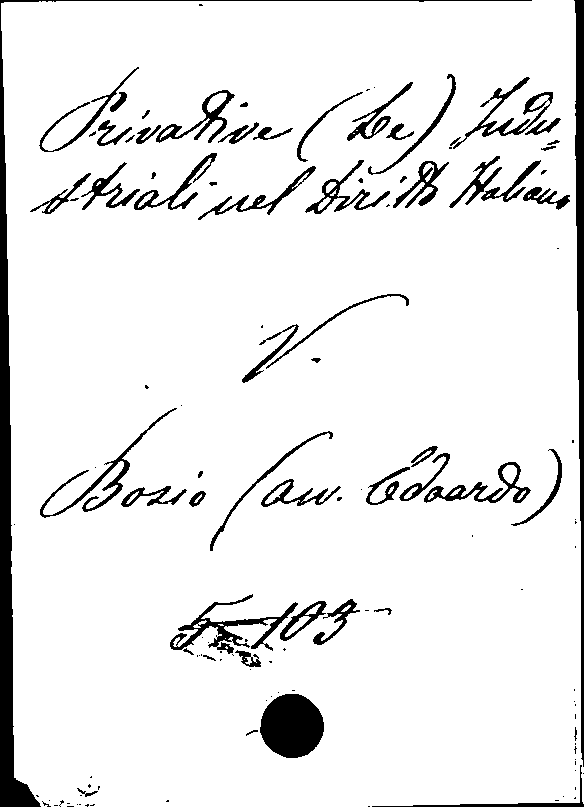 Privative (Le) Indu=
striali nel Diritto Italiano
V.
Bosio (avv. Edoardo)
5-103